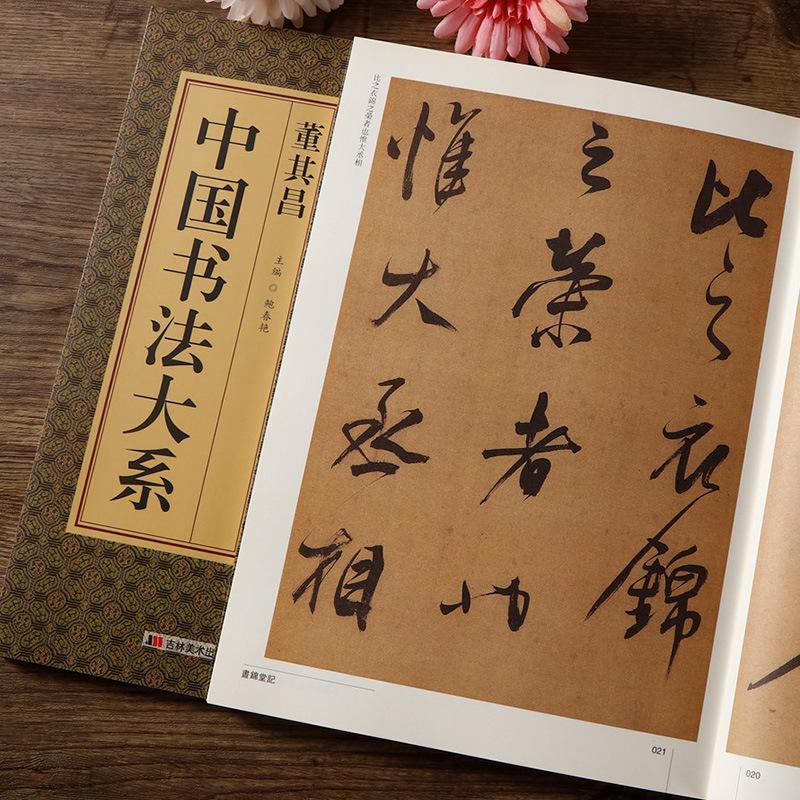 董其昌
中国书法大系
主编◎鲍春艳
吉林美术出
比之衣錦之榮者也惟大丞相
比之衣錦
之榮者也
惟大丞相
晝錦堂記
021
020